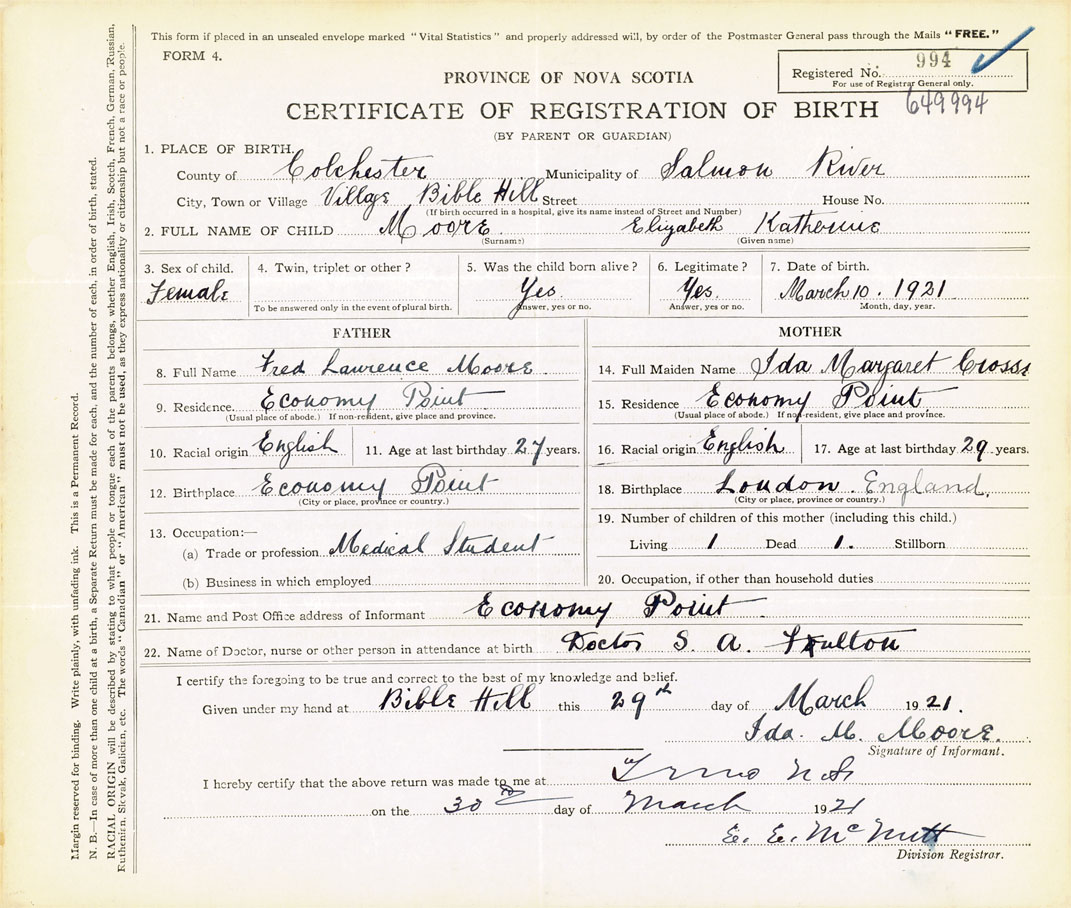 This form if placed in an unsealed envelope marked "Vital Statistics" and properly addressed will, by order of the Postmaster General pass through the Mails "FREE."
FORM 4.
PROVINCE OF NOVA SCOTIA
Registered No. 994
For use of Registrar General only.
649994
CERTIFICATE OF REGISTRATION OF BIRTH
(BY PARENT OR GUARDIAN)
1. PLACE OF BIRTH.
County of Colchester Municipality of Salmon River
City, Town or Village Village Bible Hill Street House No.
(If birth occurred in a hospital, give its name instead of Street and Number)
2. FULL NAME OF CHILD Moore Elizabeth Katherine
(Surname) (Given name)
3. Sex of child. 4. Twin, triplet or other? 5. Was the child born alive? 6. Legitimate? 7. Date of birth.
Female Yes. Yes. March 10. 1921
To be answered only in the event of plural birth. Answer, yes or no. Answer, yes or no. Month, day, year.
FATHER
8. Full Name Fred Lawrence Moore.
9. Residence. Economy Point
(Usual place of abode.) If non-resident, give place and province.
10. Racial origin English 11. Age at last birthday 27 years.
12. Birthplace Economy Point
(City or place, province or country.)
13. Occupation:—
(a) Trade or profession Medical Student
(b) Business in which employed
MOTHER
14. Full Maiden Name Ida Margaret Cross
15. Residence Economy Point.
(Usual place of abode.) If non-resident, give place and province.
16. Racial origin English 17. Age at last birthday 29 years.
18. Birthplace London. England.
(City or place, province or country.)
19. Number of children of this mother (including this child.)
Living 1 Dead 1. Stillborn
20. Occupation, if other than household duties
21. Name and Post Office address of Informant Economy Point.
22. Name of Doctor, nurse or other person in attendance at birth Doctor S. A. Fulton
I certify the foregoing to be true and correct to the best of my knowledge and belief.
Given under my hand at Bible Hill this 29th day of March 1921.
Ida. M. Moore.
Signature of Informant.
I hereby certify that the above return was made to me at Truro N.S.
on the 30th day of March 1921
E. E. McNutt
Division Registrar.
Margin reserved for binding. Write plainly, with unfading ink. This is a Permanent Record.
N. B.—In case of more than one child at a birth, a Separate Return must be made for each, and the number of each, in order of birth, stated.
RACIAL ORIGIN will be described by stating to what people or tongue each of the parents belongs, whether English, Irish, Scotch, French, German, Russian,
Ruthenian, Slovak, Galician, etc. The words "Canadian" or "American" must not be used, as they express nationality or citizenship but not a race or people.